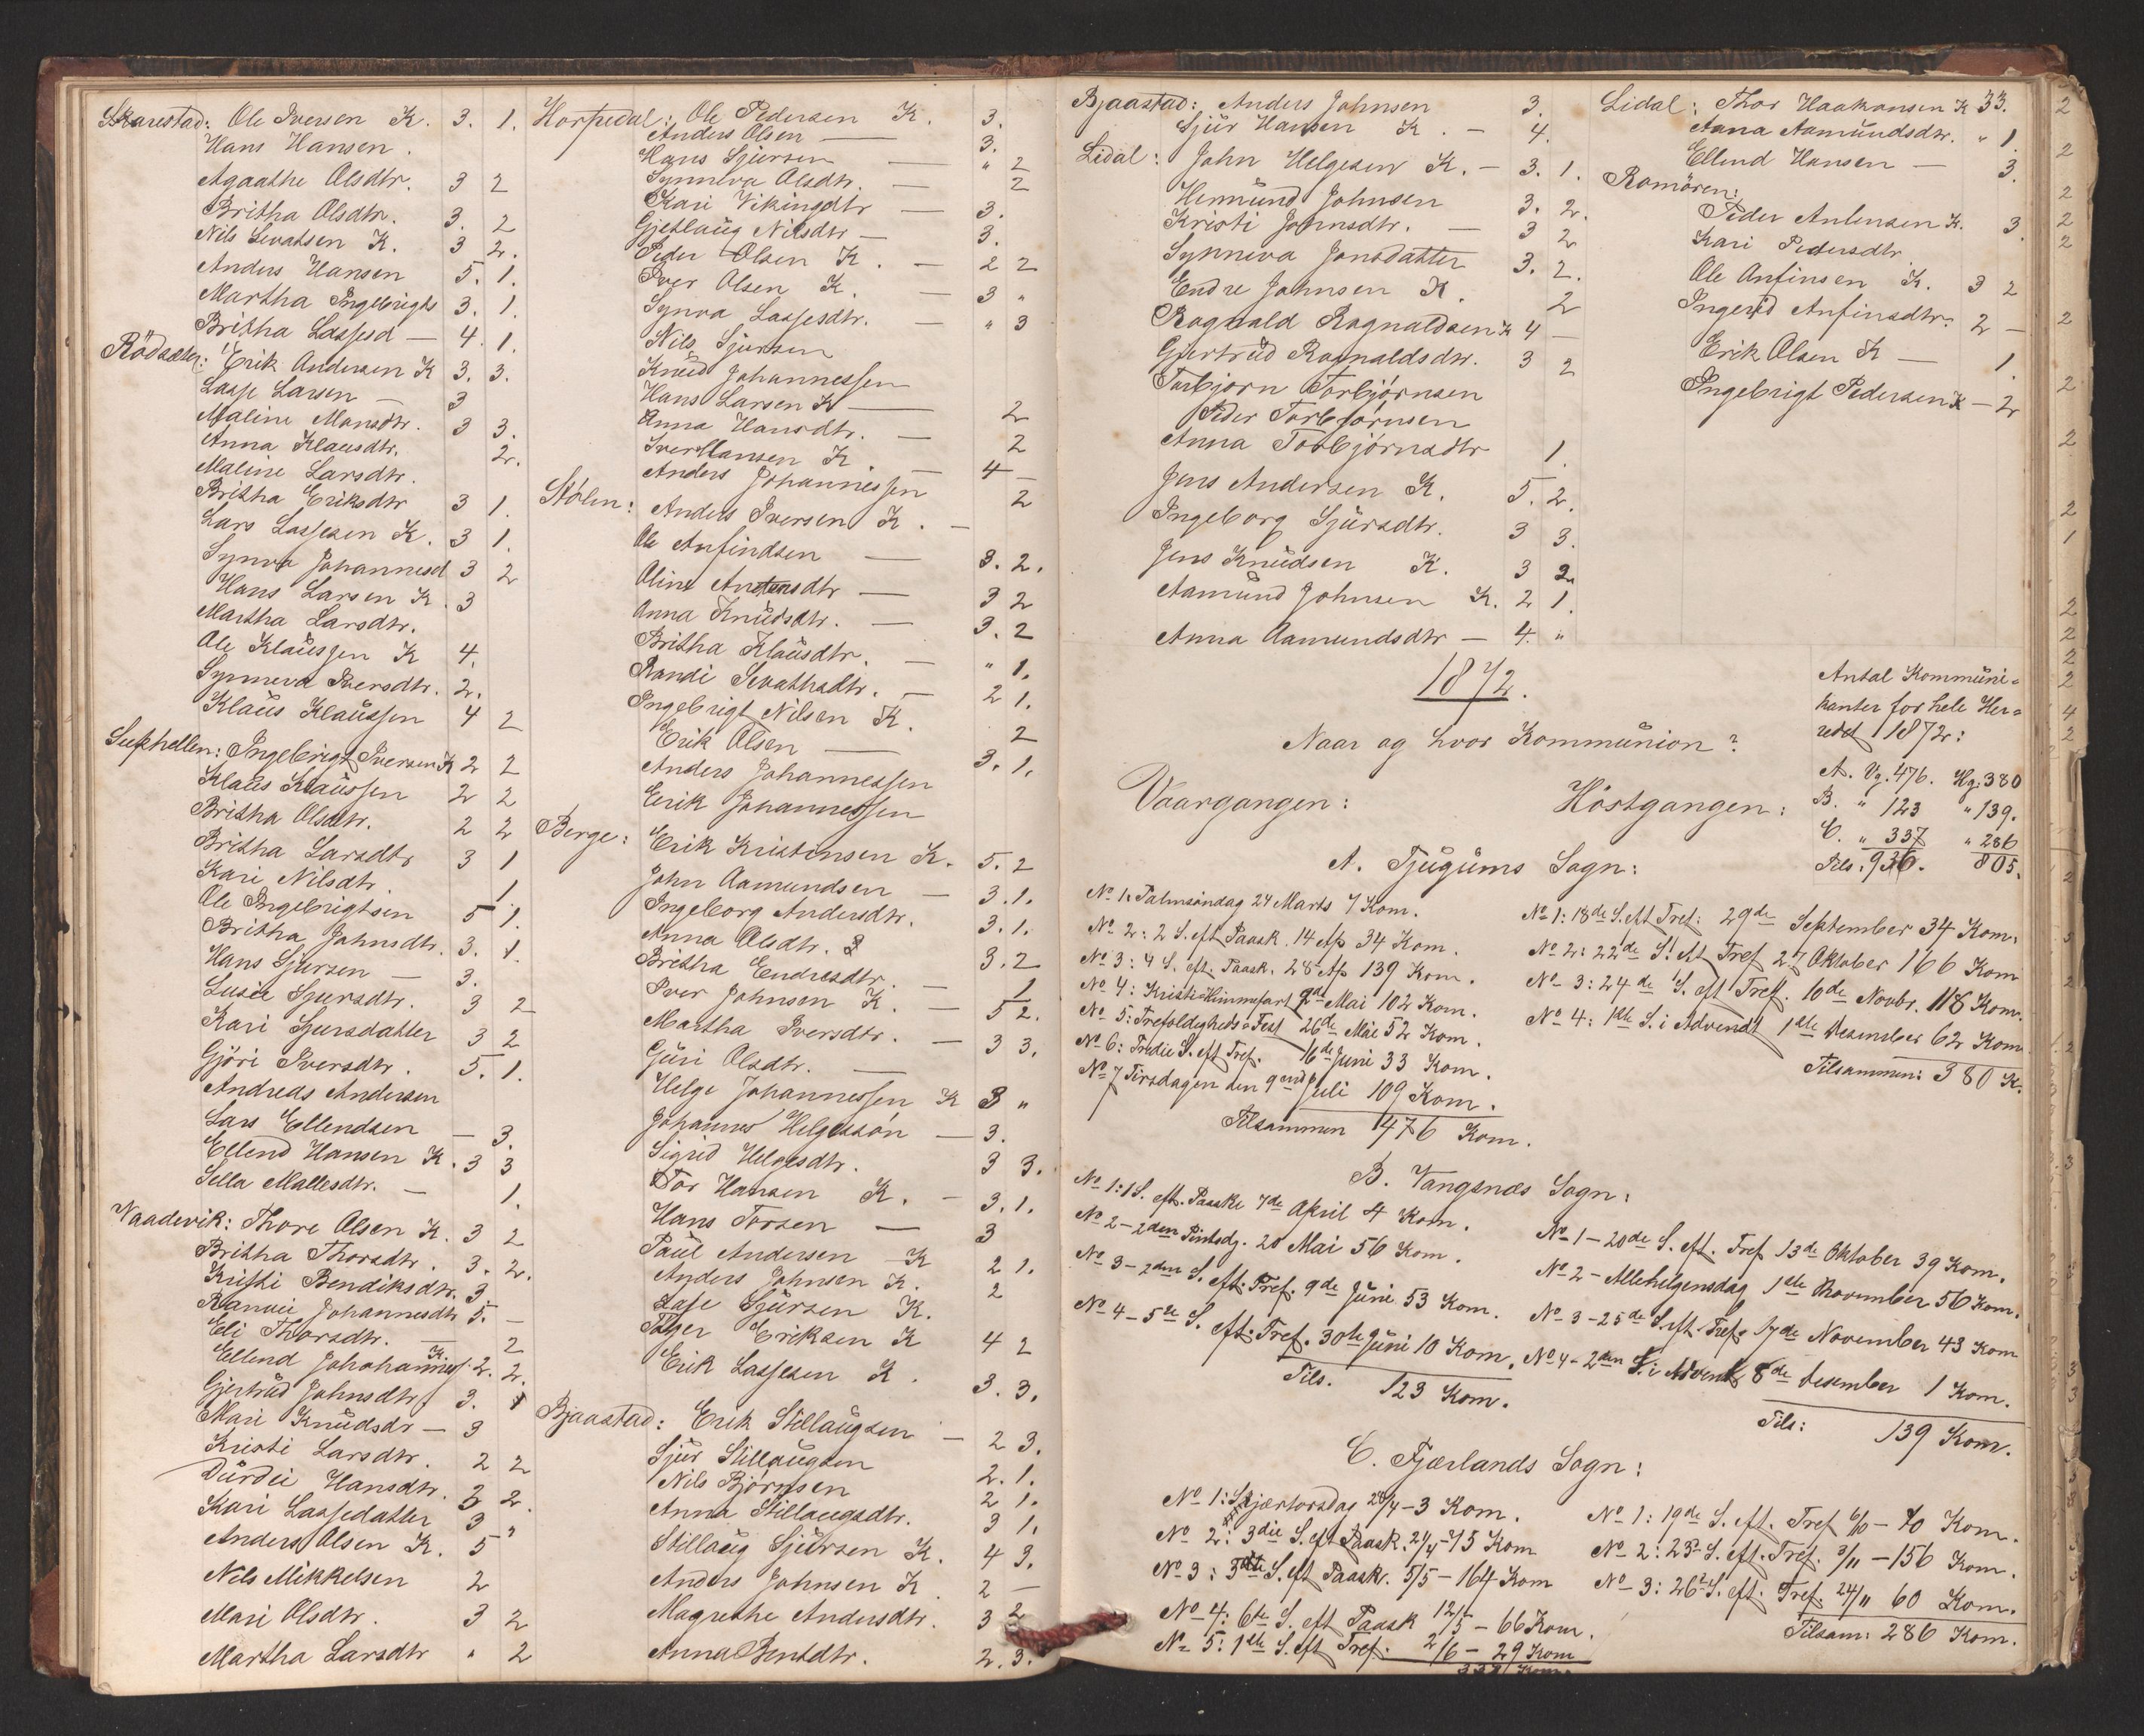 Skarestad: Ole Iversen K. 3. 1.
Hans Hansen.
Agaathe Olsdtr. 3 2
Britha Olsdtr. 3. 2
Nils Sevatsen K. 3 2.
Anders Hansen 5. 1.
Martha Ingebrigts 3. 1.
Britha Lassesd — 4. 1.
Rödseter: Erik Andersen K 3. 3.
Lasse Larsen — 3
Maline Monsdtr. 3 3.
Anna Klausdtr. 2.
Maline Larsdtr.
Britha Eriksdtr 3 1.
Lars Lassesen K. 3 1.
Synva Johannesd 3 2
Hans Larsen K. 3
Martha Larsdtr.
Ole Klaussen K 4.
Synneva Iversdtr. 2.
Klaus Klaussen 4 2
Suphellen: Ingebrigt Iversen K 2 2
Klaus Klaussen 2 2
Britha Olsdtr. 2 2
Britha Larsdtr 3 1
Kari Nilsdtr. 1.
Ole Ingebrigtsen 5 1.
Britha Johnsdtr. 3. 1.
Hans Sjursen — 3.
Lusie Sjursdtr. 3 2
Kari Sjursdatter 3 2
Gjöri Iversdtr. 5. 1.
Andreds Andersen
Lars Ellendsen — 3.
Ellend Hansen K. 3 3
Sella Mallesdtr. — 1.
Vaadevik: Thore Olsen K. 3 2
Britha Thorsdtr. 3. 2.
Kristi Bendiksdtr. 3.
Ranvei Johannesdtr 5. —
Eli Thorsdtr. — 2
Ellend Johohannes. K. 2. 2.
Gjertrud Johnsdtr. 3. 1
Mari Knudsdr — 3
Kristi Larsdtr. 2 2
Durdei Hansdtr. 3 2.
Kari Lassedatter 3 "
Anders Olsen K. 5
Nils Mikkelsen 2
Mari Olsdtr. 3 2
Martha Larsdtr " 2
Horpedal: Ole Pedersen K. 3.
Anders Olsen — 3.
Hans Sjursen — " 2
Synneva Olsdtr. — 2
Kari Vikingdtr — 3.
Gjetlaug Nilsdtr — 3.
Peder Olsen K. — 2 2
Iver Olsen K. — 3 "
Synva Lassesdtr. — " 3
Nils Sjursen
Knud Johannessen
Hans Larsen K — 2
Anna Hansdtr. — 2
Iver Hansen K. — 4 —
Anders Johannessen 2
Stölen: Anders Iversen K. —
Ole Anfindsen — 3. 2.
Oline Andersdtr — 3 2
Anna Knudsdtr. — 3. 2
Britha Klausdtr. — " 1.
Randi Sevathsdtr. — 2 1.
Ingebrigt Nilsen K. 2
Erik Olsen — 3. 1.
Anders Johannessen
Erik Johannessen
Berge: Erik Kristensen K. 5. 2
John Aamundsen — 3. 1.
Ingeborg Andersdtr. 3. 1.
Anna Olsdtr. 3. 2
Britha Endresdtr. — 1
Iver Johnsen K. — 5 2.
Martha Iversdtr. — 3 3.
Guri Olsdtr. —
Helge Johannessen K 3 "
Johannes Helgessön — 3.
Sigrid Helgesdtr. 3 3.
Tor Hansen K. — 3. 1.
Hans Torsen — 3
Paul Andersen K 2 1.
Anders Johnsen K. 2
Lasse Sjursen K.
Inger Eriksen K 4 2
Erik Lassesen K. 3. 3.
Bjaastad: Erik Stillaugsen — 2 3.
Sjur Stillaugsen 2. 1.
Nils Bjørnsen 2 1.
Anna Stillaugsdtr. 3 1.
Stillaug Sjursen K. 4 3.
Anders Johnsen K 2 —
Magrethe Andersdtr. 3 2
Anna Bentdtr. 2. 3.
Bjaastad: Anders Johnsen 3.
Sjur Hansen K. — 4.
Lidal: John Helgesen K. — 3. 1.
Hermund Johnsen 3. 2.
Kristi Johnsdtr. — 3 2
Synneva Jonsdatter 3. 2.
Endre Johnsen K. 2
Ragnvald Ragnaldsen K 4 —
Gjertrud Ragnaldsdtr. 3 2
Torbjørn Torbjørnsen
Peder Torbjørnsen
Anna Torbjørnsdtr 1.
Jens Andersen K. 5. 2.
Ingeborg Sjursdtr. 3 3.
Jens Knudsen K. 3 2
Aamund Johnsen K. 2 1.
Anna Aamundsdtr — 4. "
Lidal: Thor Haakonsen K 33.
Anna Aamundsdtr. " 1
Ellend Hansen — 3.
Romören:
Peder Anlensen K. 3.
Kari Pedersdtr
Ole Anfinsen K. 3 2
Ingerid Anfinsdtr. 2 —
Erik Olsen K — 1
Ingebrigt Pedersen K — 2
1872.
Antal Kommuni-
kanter for hele Her-
redet 1872:
A. Vg. 476. Hg. 380
B. " 123 " 139.
C. " 337 " 286
Tils: 936. 805.
Naar og hvor Kommunion?
Vaargangen: Höstgangen:
A. Tjugums Sogn:
No 1. Palmsöndag 24 Marts 7 Kom.
No 2: 2 S. eft Paask. 14 Ap 34 Kom.
No 3: 4 S. eft. Paask. 28 Ap 139 Kom.
No 4: Kristi Himmefart 9de Mai 102 Kom.
No 5: Trefoldigheds-Fest 26de Mai 52 Kom.
No 6: Tredie S. eft Tref. 16de Juni 33 Kom.
No 7 Tirsdagen den 9nde Juli 109 Kom.
Tilsammen 476 Kom.
No 1: 18de S. eft Tref: 29de September 34 Kom:
No 2: 22de S. eft Tref 27 Oktober 166 Kom
No 3: 24de S. eft Treff. 10de Novbr. 118 Kom.
No 4: 1ste S. i Advendt 1ste Desember 62 Kom
Tilsammen: 380 K.
B. Vangsnæs Sogn:
No 1: 1 S. eft. Paaske 7de April 4 Kom.
No 2 – 2den Pintsdg. 20 Mai 56 Kom.
No 3 – 2den S. eft. Tref. 9de Juni 53 Kom.
No 4 – 5te S. eft. Tref. 30te Juni 10 Kom.
Tils. 123 Kom.
No 1 – 20de S. eft. Tref 13de Oktober 39 Kom.
No 2 – Allehelgensdag 1ste November 56 Kom.
No 3 – 25de S. eft Tref. 17de November 43 Kom
No 4 – 2den S. i Advent 8de Desember 1 Kom.
Tils: 139 Kom.
C. Fjærlands Sogn:
No 1: Skjærtorsdag 28/4 – 3 Kom.
No 2: 3die S. eft Paask. 21/4 – 75 Kom
No 3: 5te S. eft Paask. 5/5 – 164 Kom
No 4: 6te S. eft Paask 12/5 – 66 Kom.
No 5: 1ste S. eft Tref. 2/6 – 29 Kom
337 Kom.
No 1: 19de S. eft. Tref 6/10 – 70 Kom.
No 2: 23de S. eft. Tref. 3/11 – 156 Kom.
No 3: 26de S. eft. Tref. 24/11 60 Kom.
Tilsam: 286 Kom.